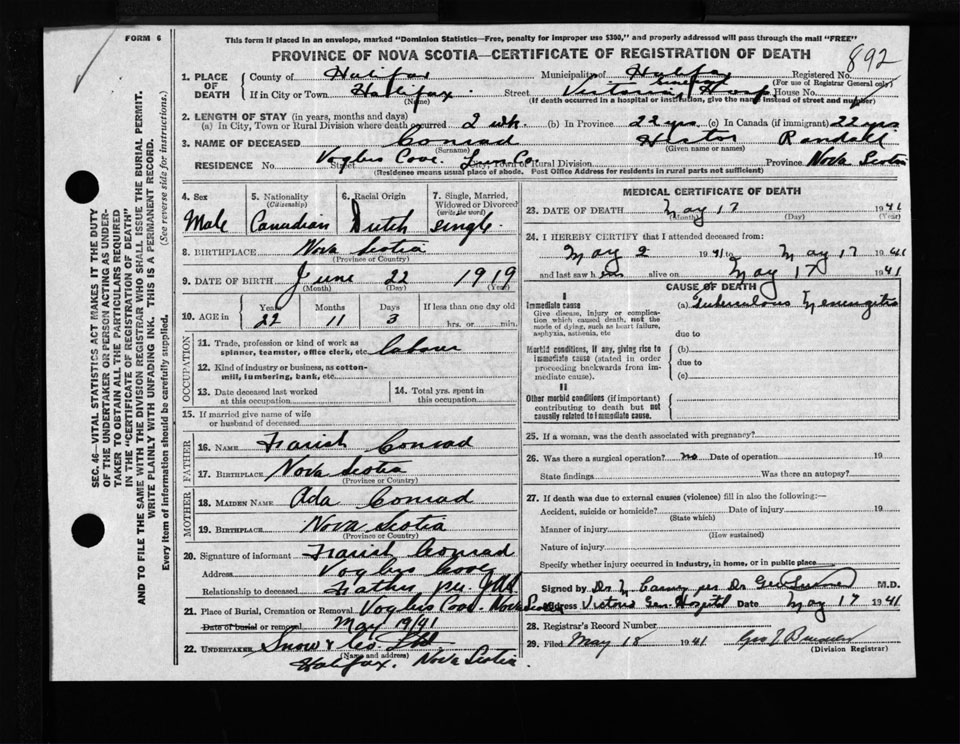 FORM 6
This form if placed in an envelope, marked "Dominion Statistics—Free, penalty for improper use $300," and properly addressed will pass through the mail "FREE"
PROVINCE OF NOVA SCOTIA—CERTIFICATE OF REGISTRATION OF DEATH
892
1. PLACE OF DEATH
County of Halifax Municipality of Halifax Registered No.
(For use of Registrar General only)
If in City or Town Halifax Street Victoria General Hosp House No.
(Name) (If death occurred in a hospital or institution, give the name instead of street and number)
2. LENGTH OF STAY (in years, months and days)
(a) In City, Town or Rural Division where death occurred 2 wk. (b) In Province 22 yrs (c) In Canada (if immigrant) 22 yrs
3. NAME OF DECEASED Conrad Randall
(Surname) (Given name or names)
RESIDENCE No. Voglers Cove Street Lun. Co. City, Town or Rural Division Province Nova Scotia
(Residence means usual place of abode. Post Office Address for residents in rural parts not sufficient)
4. Sex
Male
5. Nationality
(Citizenship)
Canadian
6. Racial Origin
Dutch
7. Single, Married, Widowed or Divorced
(write the word)
single.
8. BIRTHPLACE Nova Scotia
(Province or Country)
9. DATE OF BIRTH June 22 1919
(Month) (Day) (Year)
10. AGE in
Years Months Days If less than one day old
22 11 3 hrs. or min.
OCCUPATION
11. Trade, profession or kind of work as spinner, teamster, office clerk, etc. labour
12. Kind of industry or business, as cotton-mill, lumbering, bank, etc.
13. Date deceased last worked at this occupation
14. Total yrs. spent in this occupation
15. If married give name of wife or husband of deceased
FATHER
16. NAME Conrad
17. BIRTHPLACE Nova Scotia
(Province or Country)
MOTHER
18. MAIDEN NAME Ada Conrad
19. BIRTHPLACE Nova Scotia
(Province or Country)
20. Signature of informant Conrad
Address Voglers Cove
Relationship to deceased Father per
21. Place of Burial, Cremation or Removal Voglers Cove. Nova Scotia
Date of burial or removal May 19/41
22. UNDERTAKER Snow & Co. Ltd
(Name and address)
Halifax. Nova Scotia.
MEDICAL CERTIFICATE OF DEATH
23. DATE OF DEATH May 17 1941
(Month) (Day) (Year)
24. I HEREBY CERTIFY that I attended deceased from:
May 2 1941 to May 17 1941
and last saw h im alive on May 17 1941
CAUSE OF DEATH
I
Immediate cause
Give disease, injury or complication which caused death, not the mode of dying, such as heart failure, asphyxia, asthenia, etc
(a) Tuberculous Meningitis
due to
Morbid conditions, if any, giving rise to immediate cause (stated in order proceeding backwards from immediate cause).
(b)
due to
(c)
II
Other morbid conditions (if important) contributing to death but not causally related to immediate cause.
25. If a woman, was the death associated with pregnancy?
26. Was there a surgical operation? no Date of operation 19
State findings Was there an autopsy?
27. If death was due to external causes (violence) fill in also the following:—
Accident, suicide or homicide? Date of injury 19
(State which)
Manner of injury
(How sustained)
Nature of injury
Specify whether injury occurred in industry, in home, or in public place
Signed by Dr. per Dr M.D.
Address Victoria Gen. Hospital Date May 17 1941
28. Registrar's Record Number
29. Filed May 18 1941
(Division Registrar)
SEC. 46—VITAL STATISTICS ACT MAKES IT THE DUTY
OF THE UNDERTAKER OR PERSON ACTING AS UNDER-
TAKER TO OBTAIN ALL THE PARTICULARS REQUIRED
IN THE "CERTIFICATE OF REGISTRATION OF DEATH"
AND TO FILE THE SAME WITH THE DIVISION REGISTRAR WHO SHALL ISSUE THE BURIAL PERMIT.
WRITE PLAINLY WITH UNFADING INK. THIS IS A PERMANENT RECORD.
Every item of information should be carefully supplied. (See reverse side for instructions.)